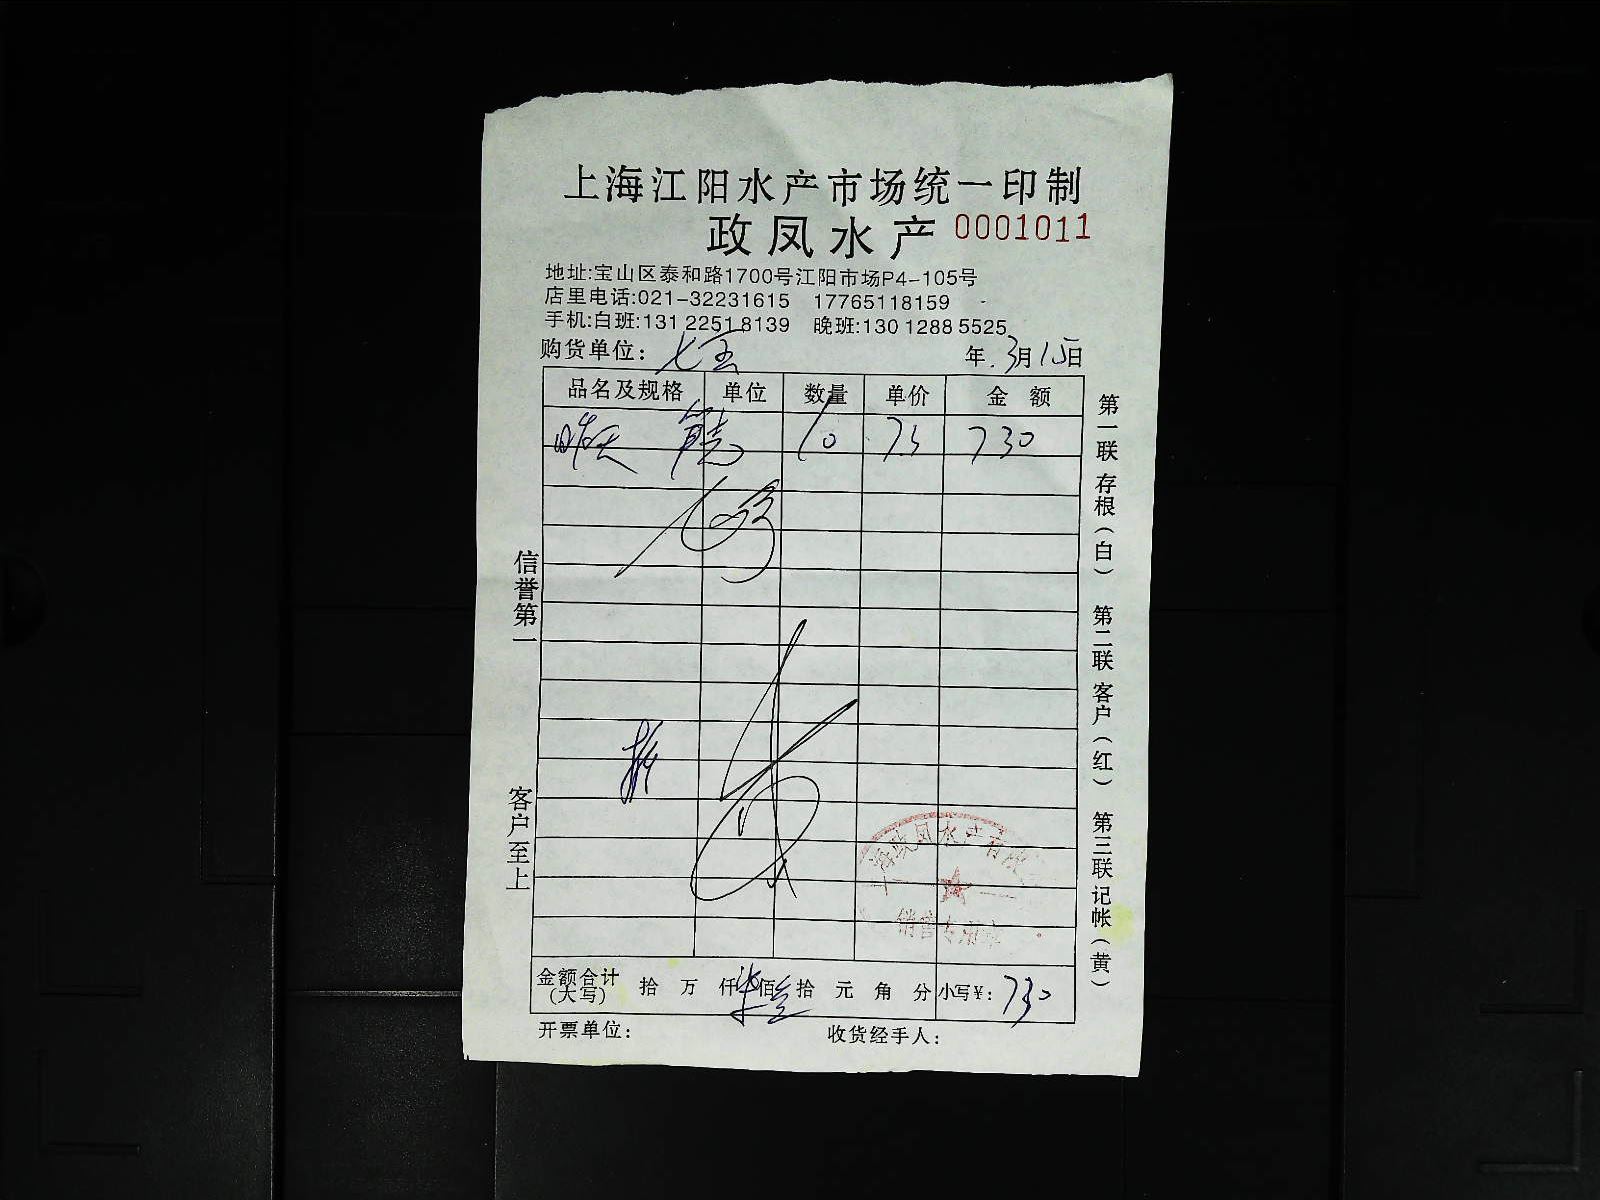 上海江阳水产市场统一印制
政凤水产 0001011
地址:宝山区泰和路1700号江阳市场P4-105号
店里电话:021-32231615 17765118159
手机:白班:131 2251 8139 晚班:130 1288 5525
购货单位: 七宝 年.3月15日
品名及规格 单位 数量 单价 金额
昨天 10 73 730
信誉第一
客户至上
第一联 存根(白) 第二联 客户(红) 第三联 记帐(黄)
海政凤水产有限
销售专用章
金额合计(大写) 拾 万 仟 柒佰 叁拾 元 角 分 小写¥: 730
开票单位: 收货经手人: